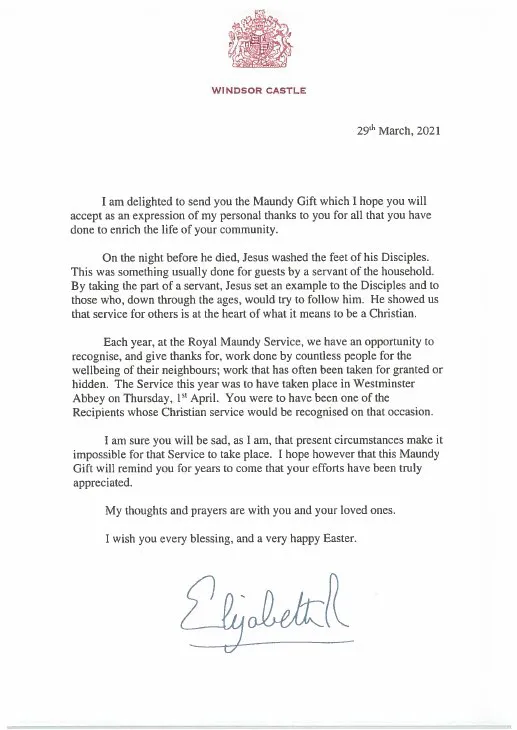 WINDSOR CASTLE
29th March, 2021
I am delighted to send you the Maundy Gift which I hope you will
accept as an expression of my personal thanks to you for all that you have
done to enrich the life of your community.
On the night before he died, Jesus washed the feet of his Disciples.
This was something usually done for guests by a servant of the household.
By taking the part of a servant, Jesus set an example to the Disciples and to
those who, down through the ages, would try to follow him. He showed us
that service for others is at the heart of what it means to be a Christian.
Each year, at the Royal Maundy Service, we have an opportunity to
recognise, and give thanks for, work done by countless people for the
wellbeing of their neighbours; work that has often been taken for granted or
hidden. The Service this year was to have taken place in Westminster
Abbey on Thursday, 1st April. You were to have been one of the
Recipients whose Christian service would be recognised on that occasion.
I am sure you will be sad, as I am, that present circumstances make it
impossible for that Service to take place. I hope however that this Maundy
Gift will remind you for years to come that your efforts have been truly
appreciated.
My thoughts and prayers are with you and your loved ones.
I wish you every blessing, and a very happy Easter.
Elizabeth R